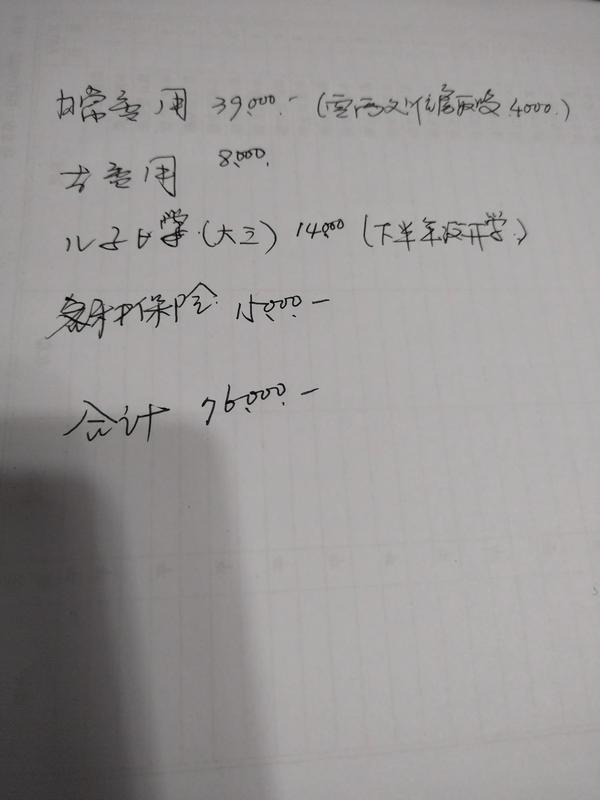 日常费用 39,000.- ( 4000.)
费用 8,000.
儿子上学.(大三) 14,000 (下半年没开学.)
保险 15,000.-
合计 76,000.-